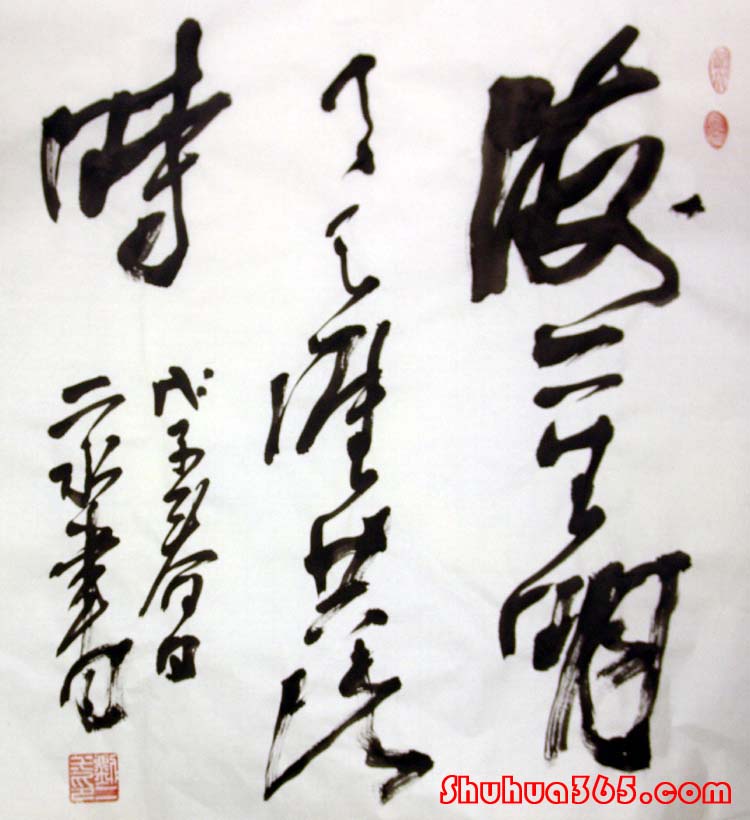 海上生明
月天涯共此
時
戊子春日
二水書
Shuhua365.com